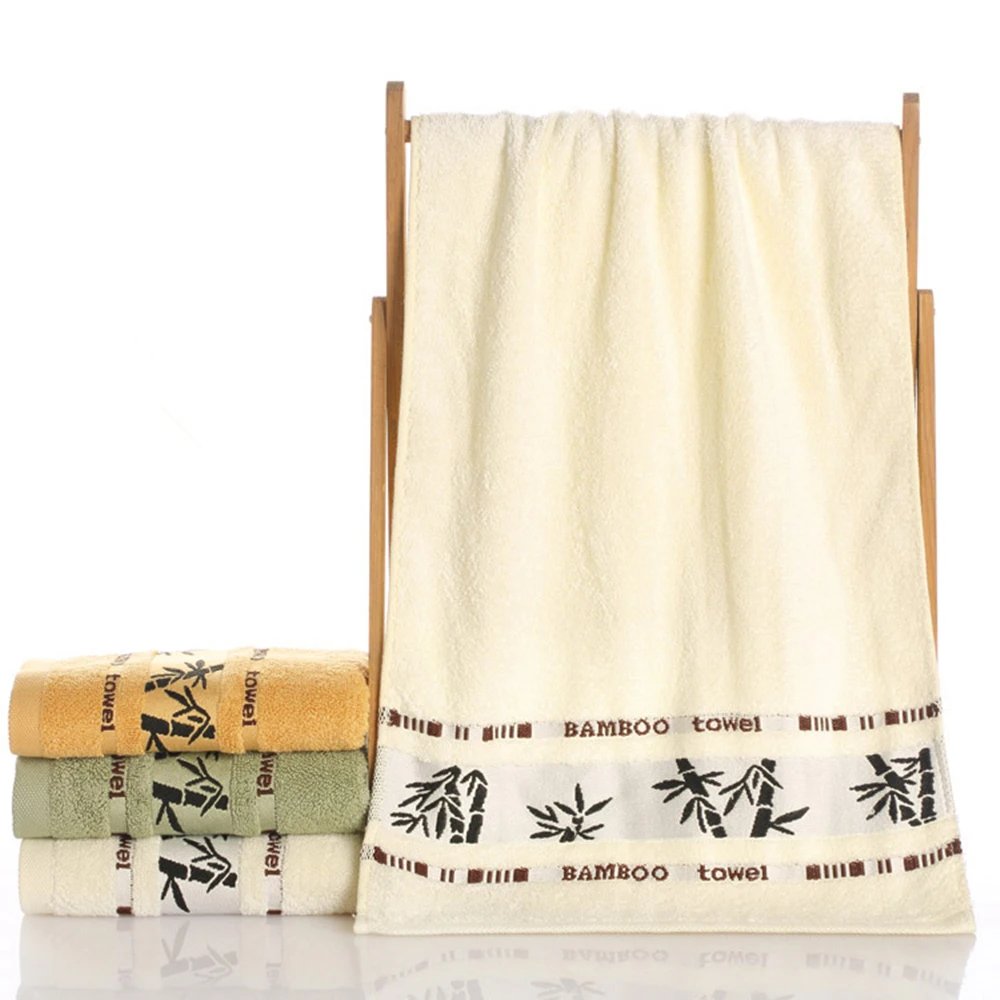 BAMBOO towel
BAMBOO towel
towel
towel
towel
towel
towel
towel